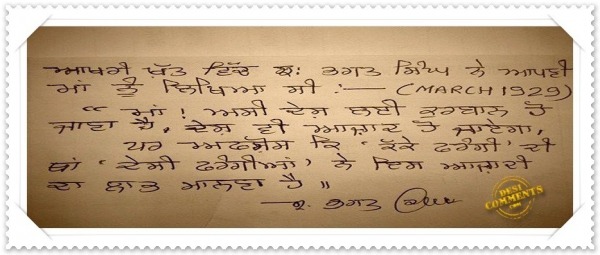 ਆਖਰੀ ਖੱਤ ਵਿੱਚ ਸ: ਭਗਤ ਸਿੰਘ ਨੇ ਆਪਣੀ
ਮਾਂ ਨੂੰ ਲਿਖਿਆ ਸੀ :— (MARCH 1929)
“ ਮਾਂ ! ਅਸੀ ਦੇਸ਼ ਲਈ ਕੁਰਬਾਨ ਹੋ
ਜਾਣਾ ਹੈ, ਦੇਸ਼ ਵੀ ਆਜ਼ਾਦ ਹੋ ਜਾਏਗਾ,
ਪਰ ਅਫਸ਼ੋਸ ਕਿ ‘ ਗੋਰੇ ਫਰੰਗੀ’ ਦੀ
ਥਾਂ ‘ ਦੇਸੀ ਫਰੰਗੀਆਂ’ ਨੇ ਇਸ ਆਜ਼ਾਦੀ
ਦਾ ਲਾਭ ਮਾਨਣਾ ਹੈ ॥
— ਸ. ਭਗਤ
DESI
COMMENTS
.COM